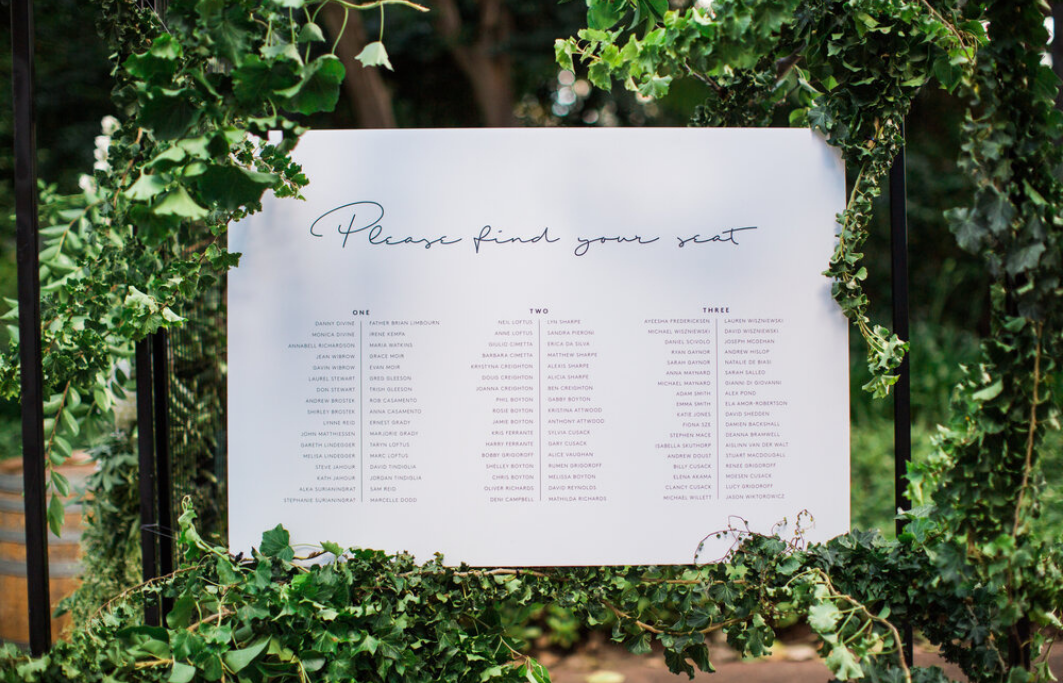 Please find your seat
ONE
DANNY DIVINE | FATHER BRIAN LIMBOURN
MONICA DIVINE | IRENE KEMPA
ANNABELL RICHARDSON | MARIA WATKINS
JEAN WIBROW | GRACE MOIR
GAVIN WIBROW | EVAN MOIR
LAUREL STEWART | GREG GLEESON
DON STEWART | TRISH GLEESON
ANDREW BROSTEK | ROB CASAMENTO
SHIRLEY BROSTEK | ANNA CASAMENTO
LYNNE REID | ERNEST GRADY
JOHN MATTHIESSEN | MARJORIE GRADY
GARETH LINDEGGER | TARYN LOFTUS
MELISA LINDEGGER | MARC LOFTUS
STEVE JAHOUR | DAVID TINDIGLIA
KATH JAHOUR | JORDAN TINDIGLIA
ALKA SURIANINDRAT | SAM REID
STEPHANIE SURIANINDRAT | MARCELLE DODD
TWO
NEIL LOFTUS | LYN SHARPE
ANNE LOFTUS | SANDRA PIERONI
GIULIO CIMETTA | ERICA DA SILVA
BARBARA CIMETTA | MATTHEW SHARPE
KRYSTYNA CREIGHTON | ALEXIS SHARPE
DOUG CREIGHTON | ALICIA SHARPE
JOANNA CREIGHTON | BEN CREIGHTON
PHIL BOYTON | GABBY BOYTON
ROSIE BOYTON | KRISTINA ATTWOOD
JAMIE BOYTON | ANTHONY ATTWOOD
KRIS FERRANTE | SYLVIA CUSACK
HARRY FERRANTE | GARY CUSACK
BOBBY GRIGOROFF | ALICE VAUGHAN
SHELLEY BOYTON | RUMEN GRIGOROFF
CHRIS BOYTON | MELISSA BOYTON
OLIVER RICHARDS | DAVID REYNOLDS
DENI CAMPBELL | MATHILDA RICHARDS
THREE
AYEESHA FREDERICKSEN | LAUREN WISZNIEWSKI
MICHAEL WISZNIEWSKI | DAVID WISZNIEWSKI
DANIEL SCIVOLO | JOSEPH MCGEHAN
RYAN GAYNOR | ANDREW HISLOP
SARAH GAYNOR | NATALIE DE BIASI
ANNA MAYNARD | SARAH SALLEO
MICHAEL MAYNARD | GIANNI DI GIOVANNI
ADAM SMITH | ALEX POND
EMMA SMITH | ELA AMOR-ROBERTSON
KATIE JONES | DAVID SHEDDEN
FIONA SZE | DAMIEN BACKSHALL
STEPHEN MACE | DEANNA BRAMWELL
ISABELLA SEUTHORP | AISLINN VAN DER WALT
ANDREW DOUST | STUART MACDOUGALL
BILLY CUSACK | RENEE GRIGOROFF
ELENA AKAMA | CUSACK
CLANCY CUSACK | LUCY GRIGOROFF
MICHAEL WILLETT | JASON WIKTOROWICZ